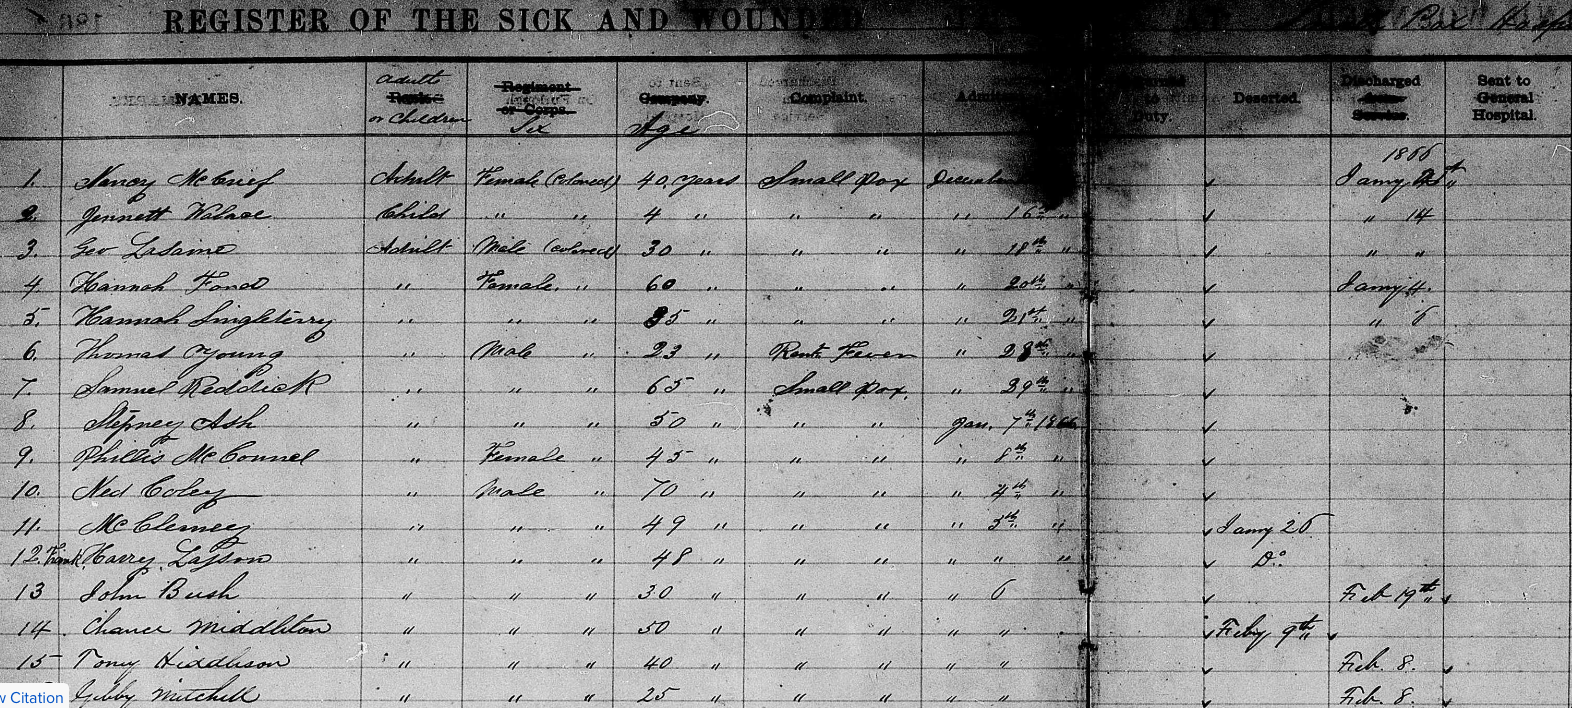 REGISTER OF THE SICK AND WOUNDED Box
NAMES. Adults Rank or Children Regiment or Corps. Sex Company. Age Complaint. Duty. Deserted. Discharged Service. Sent to General Hospital.
1866
1. Nancy Adult Female (colored) 40 years Small pox
2. Jennett Child " " 4 " " " " 16th " " 14
3. Geo Adult Male (colored) 30 " " " " 18th " " "
4. Hannah " Female " 60 " " " " 20th " Jany 4.
5. Hannah Singleterry " " " 35 " " " " 21st " " 6
6. Thomas Young " Male " 23 " Fever " 28th "
7. Samuel Reddick " " " 65 " Small pox. " 29th "
8. Stepney Ash " " " 50 " " " Jan. 7th 1866
9. Phillis McConnel " Female " 45 " " " " 8th "
10. Ned Coley " Male " 70 " " " " 4th "
11. " " " 49 " " " " 5th " Jany 26
12. Frank Harry " " " 48 " " " " " " Do.
13 John Bush " " " 30 " " " " 6 Feb 19th
14. Chance Middleton " " " 50 " " " " " Feby 9th
15 Toney " " " 40 " " " " " Feb. 8.
Mitchell " " " 25 " " " " " Feb. 8.
w Citation